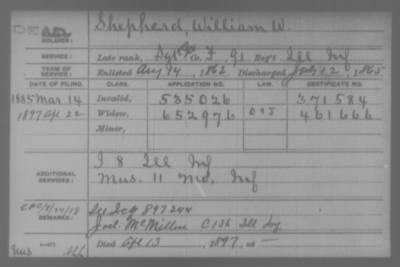 DEAD.
SOLDIER: Shepherd, William W.
SERVICE: Late rank, Co. F, 91 Reg't Ill Inf
TERM OF SERVICE: Enlisted Aug 14, 1862, Discharged July 12, 1865
DATE OF FILING. CLASS. APPLICATION NO. LAW. CERTIFICATE NO.
1885 Mar 14 Invalid, 535026 371584
1897 Apl 22 Widow, 652976 461666
Minor,
ADDITIONAL SERVICES: I 8 Ill Inf
Mus. 11 Mo. Inf
REMARKS: 897244
Joel McMillin C 136 Ill Inf
Died Apl 13, 1897, at —